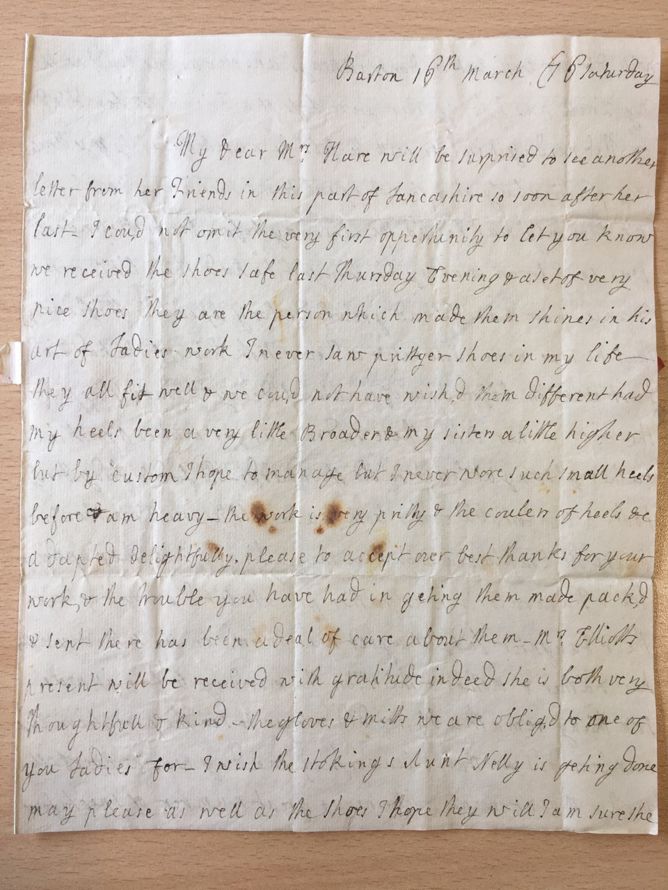 Barton 16th March 76 Saturday
My dear Mrs Hare will be surprised to see another
letter from her Friends in this part of Lancashire so soon after her
last - I could not omit the very first oppertunity to let you know
we received the shoes safe last Thursday Evening & a set of very
nice shoes they are the person which made them shines in his
art of Ladies work I never saw prittyer shoes in my life
they all fit well & we could not have wish,d them different had
my heels been a very little Broader & my sisters a little higher
but by custom I hope to manage but I never wore such small heels
before & am heavy - the work is very pritty & the coulers of heels &c
adapted delightfully. please to accept over best thanks for your
work, & the trouble you have had in geting them made pack,d
& sent there has been a deal of care about them - Mrs Elliotts
present will be received with gratitude indeed she is both very
thoughtfull & kind - the gloves & mitts we are oblig,d to one of
you Ladies for - I wish the stokings Aunt Nelly is geting done
may please as well as the shoes I hope they will I am sure she